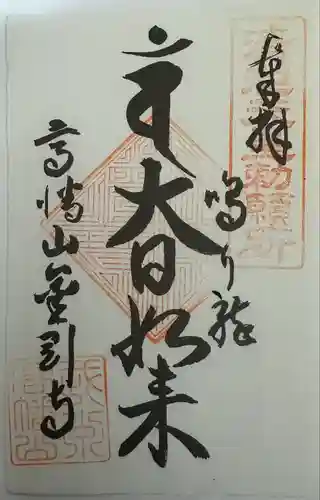 奉拝
鳴り龍
大日如来
高幡山金剛寺